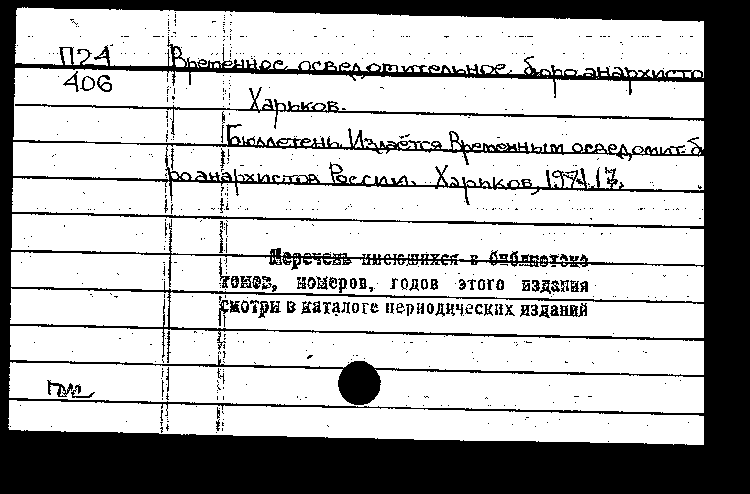 П24 Временное осведомительное бюро анархисто
406
Харьков.
Бюллетень. Издаётся Временным осведомит. б
ро анархистов России. Харьков,
Перечень имеющихся в библиотеке
томов, номеров, годов этого издания
смотри в каталоге периодических изданий